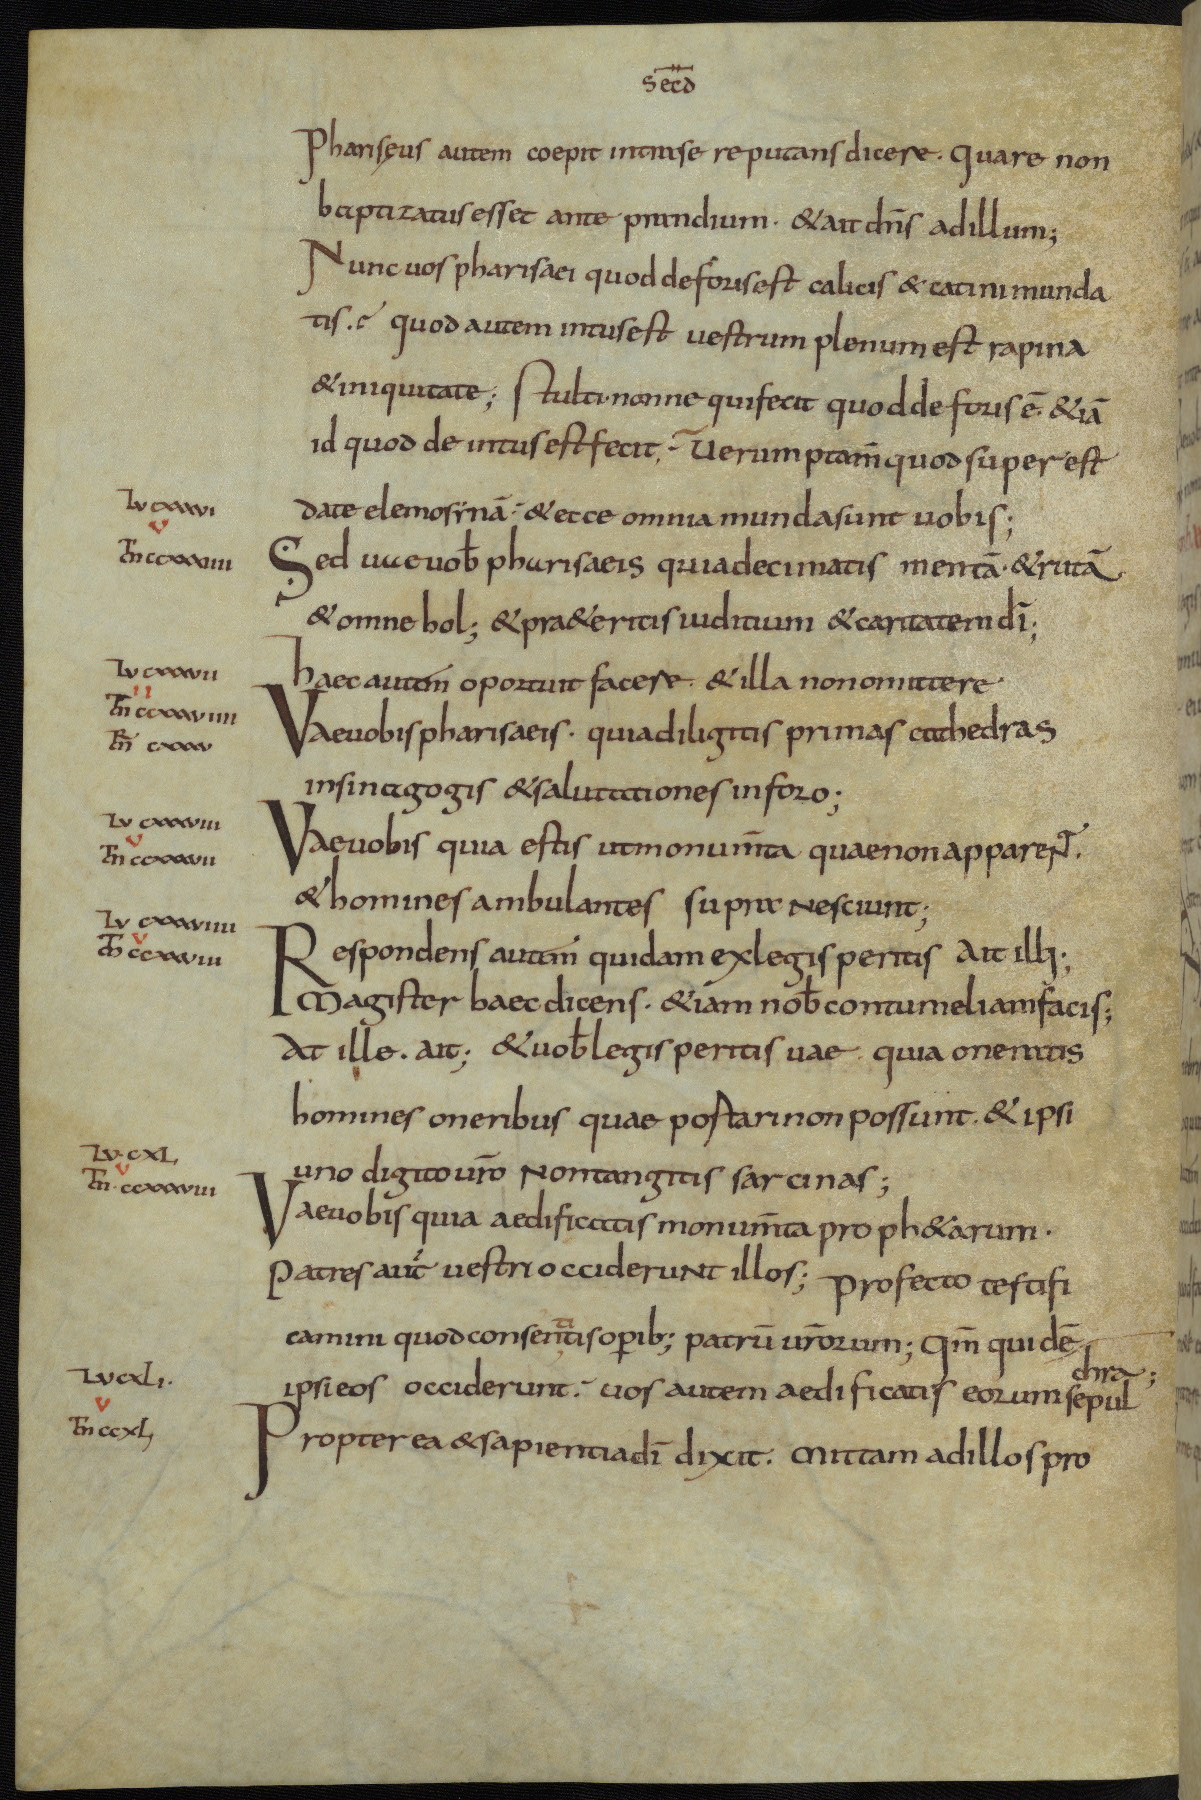 secd̄
Phariseus autem coepit intra se reputans dicere. Quare non
baptizatus esset ante prandium. & ait dn̄s ad illum;
Nunc uos pharisaei quod deforis est calicis & catini munda
tis. quod autem intus est uestrum plenum est rapina
& iniquitate; Stulti. nonne qui fecit quod de foris ē. &iā
id quod de intus est fecit. Uerumptam̄ quod super est
date elemosinā. & ecce omnia munda sunt uobis;
Lv cxxxvi
v
Th̄ ccxxxiiii
Sed uae uob̄ pharisaeis quia decimatis mentā. & rutā.
& omne hol; & pra&eritis iuditium & caritatem dī;
haec autem oportuit facere. & illa non omittere
Lv cxxxvii
ii
Th̄ ccxxxviiii
m̄r cxxxv
Vae uobis pharisaeis. quia diligitis primas cathedras
in sinagogis & salutationes in foro;
Lv cxxxviii
v
Th̄ ccxxxvii
Vae uobis quia estis ut monum̄ta quae non apparent.
& homines ambulantes supra nesciunt;
Lv cxxxviiii
v
Th̄ ccxxxviii
Respondens autem quidam ex legis peritis Ait illi;
Magister haec dicens. &iam nob̄ contumeliam facis;
At ille. ait; & uob̄ legis peritis uae. quia oneratis
homines oneribus quae portari non possunt. & ipsi
uno digito ur̄o Non tangitis sarcinas;
Lv. cxL,
v
Th̄. ccxxxviii
Vae uobis quia aedificatis monum̄ta proph&arum.
Patres aut̄ uestri occiderunt illos; Profecto testifi
camini quod consentitis opib; patrū ur̄orum; Qm̄ quidē
ipsi eos occiderunt. uos autem aedificatis eorum sepul
chra;
Lv cxLi.
v
Th̄ ccxL,
Propterea & sapientia dī dixit. Mittam ad illos pro